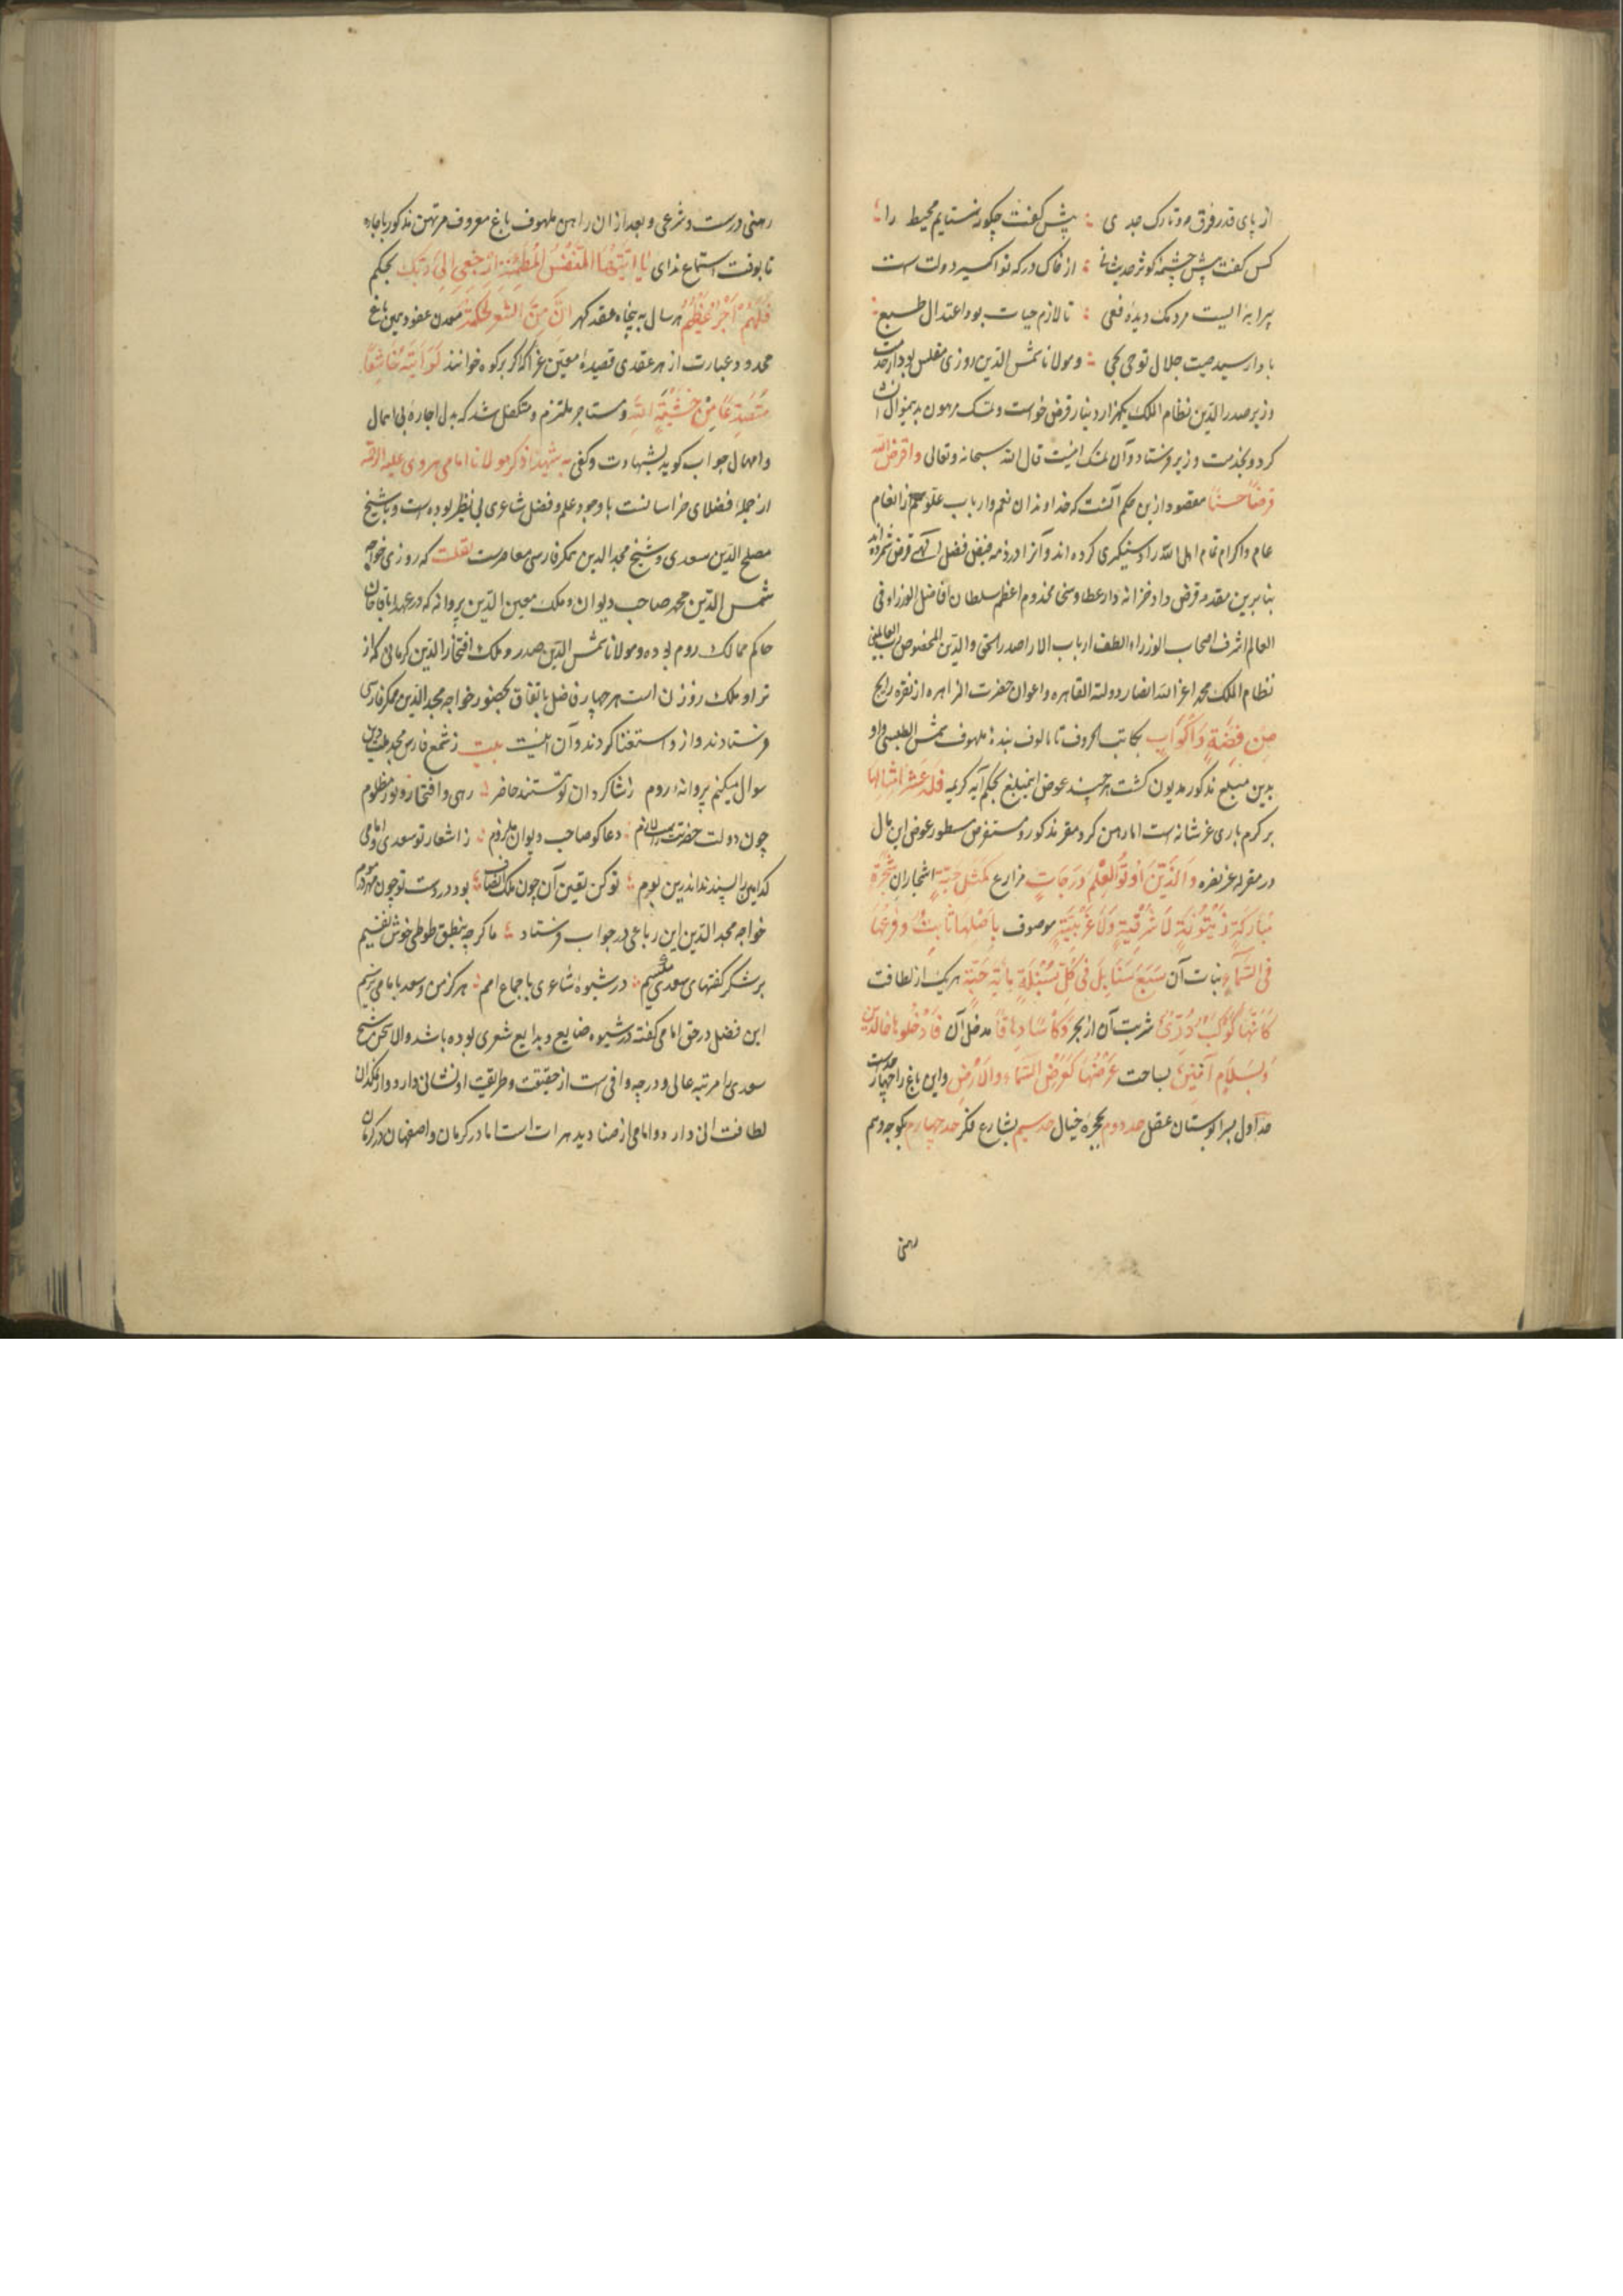 از پای قدر فرق مه و تارک جدی ؞ پیش کفت چگونه ستایم محیط را ؞
کس گفت پیش چشمه کوثر حدیث ؞ از خاک درکه تو اکسیر دولت است
پیرایه الیست مردمک دیده فعی ؞ تا لازم حیات بود اعتدال طبع ؞
بادا رسید صیت جلال تو حی بحی ؞ و مولانا شمس الدین روزی مفلس بود از خدمت
وزیر صدر الدین نظام الملک یکهزار دینار قرض خواست و تمسک مرهون بدینموال انشا
کرد و بخدمت وزیر فرستاد و آن تمسک اینست قال الله سبحانه و تعالی واقرضوا الله
قرضا حسنا مقصود ازین حکم آنست که خداوندان نعم و ارباب علو همم از انعام
عام و اکرام تمام اهل الله را دستگیری کرده اند و آنرا در ذمه فیض فضل الهی قرض شمرده اند
بنا برین مقدمه قرض داد و خزانه دار عطا و سخی مخدوم اعظم سلطان افاضل الوزراء فی
العالم اشرف اصحاب الوزراء الطف ارباب الاراء صدر الحق والدین المخصوص رب العالمین
نظام الملک محمد اعز الله انصار دولته القاهره و اعوان حضرت الزاهره از نقره رایج
من فضة و اکواب بکاتب الحروف تا مالوف بنده ملهوف شمس الطبسی و او
بدین مبلغ مذکور مدیون کشت هرچند عوض اینمبلغ بحکم آیه کریمه فله عشر امثالها
بر کرم باری عز شانه است اما رهن کرد مقر مذکور و مستقرض مسطور عوض این مال
در مقر له عز نصره والذین اوتوا العلم درجات مزارع کمثل حبة اشجاران شجرة
مبارکة زیتونة لا شرقیة ولا غربیة موصوف باصلها ثابت و فرعها
فی السماء نبات آن سبع سنابل فی کل سنبلة مایة حبة هر یک از لطافت
کانها کوکب دری شربت آن از بحر وکاسا دهاقا مدخل آن فادخلوها خالدین
و بسلام آمنین بساحت عرضها کعرض السماء والارض و این باغ را چهار حدست
حد اول بسرابوستان عقل حد دوم بحجره خیال حد سیم بشارع فکر حد چهارم بکوچه وهم
رهنی
رهنی درست و شرعی و بعد از ان راهن ملهوف باغ معروف مرتهن مذکور باجاره
تا بوقت استماع ندای یا ایتها النفس المطمئنة ارجعی الی ربک بحکم
فلهم اجر عظیم هر سال به پنجاه عقد کهر ان من الشعر لحکمة معدن عقود یمین باغ
محدود و عبارت از هر عقدی قصیده معین غرا که اگر بر کوه خوانند لرایته خاشعا
متصدعا من خشیة الله و مستاجر ملتزم و متکفل شد که بدل اجاره بی اهمال
و امهال جواب کوید بشهادت و کفی به شهیدا ذکر مولانا امامی هروی علیه الرحمه
از جمله فضلای خراسانست با وجود علم و فضل شاعری بی نظیر بوده است و با شیخ
مصلح الدین سعدی و شیخ مجد الدین همکر فارسی معاصرست نقلست که روزی خواجه
شمس الدین محمد صاحب دیوان و ملک معین الدین پروانه که در عهد اباقا خان
حاکم ممالک روم بوده و مولانا شمس الدین صدر و ملک افتخار الدین کرمانی که از
نژاد ملک زوزن است هر چهار فاضل باتفاق بحضور خواجه مجد الدین همکر فارسی
فرستادند و از و استفتا کردند و آن اینست بیت ز شمع فارس مجد ملت و دین
سوال میکنم پروانه روم ز شاکردان تو هستند حاضر ؞ رهی و افتخار و نور مظلوم
چون دولت حضرتت را ملازم ؞ دعاکو صاحب دیوان ملزوم ؞ ز اشعار تو سعدی و امامی
کدامین به پسندند اندرین بوم ؞ تو کن تعیین آن چون ملک انصاف ؞ بود در دست تو چون مهره موم
خواجه مجد الدین این رباعی در جواب فرستاد ؞ ما کرچه بنطق طوطی خوش نفسیم
بر شکر کفتهای سعدی مکسیم ؞ در شیوه شاعری باجماع امم ؞ هرکز من و سعدی بامامی نرسیم
این فضل در حق امامی کفته در شیوه صنایع و بدایع شعری بوده باشد والا سخن شیخ
سعدی را مرتبه عالی و درجه وافی است از حقیقت و طریقت او نشانی دارد و از نمکدان
لطافت انی دارد و امامی از صنادید هرات است اما در کرمان و اصفهان در کرمان